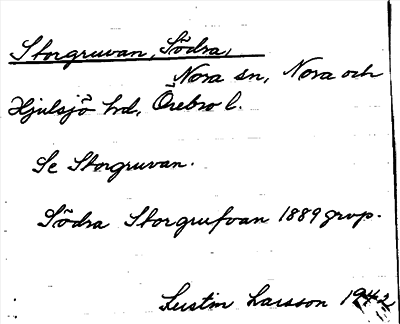 Storgruvan, Södra,
Nora sn, Nora och
Hjulsjö hd, Örebro l.
Se Storgruvan.
Södra Storgrufvan 1889 grvp.
Larsson 1942